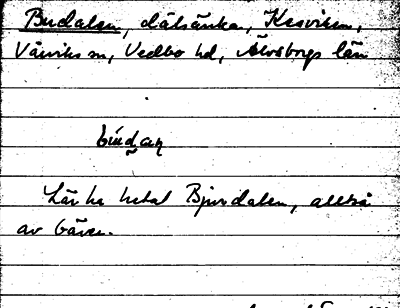 Budalen, dälsänka, Kesviken,
Vårviks sn, Vedbo hd, Älvsborgs län
búdan
Lär ha hetat Bjurdalen, alltså
av bäver.